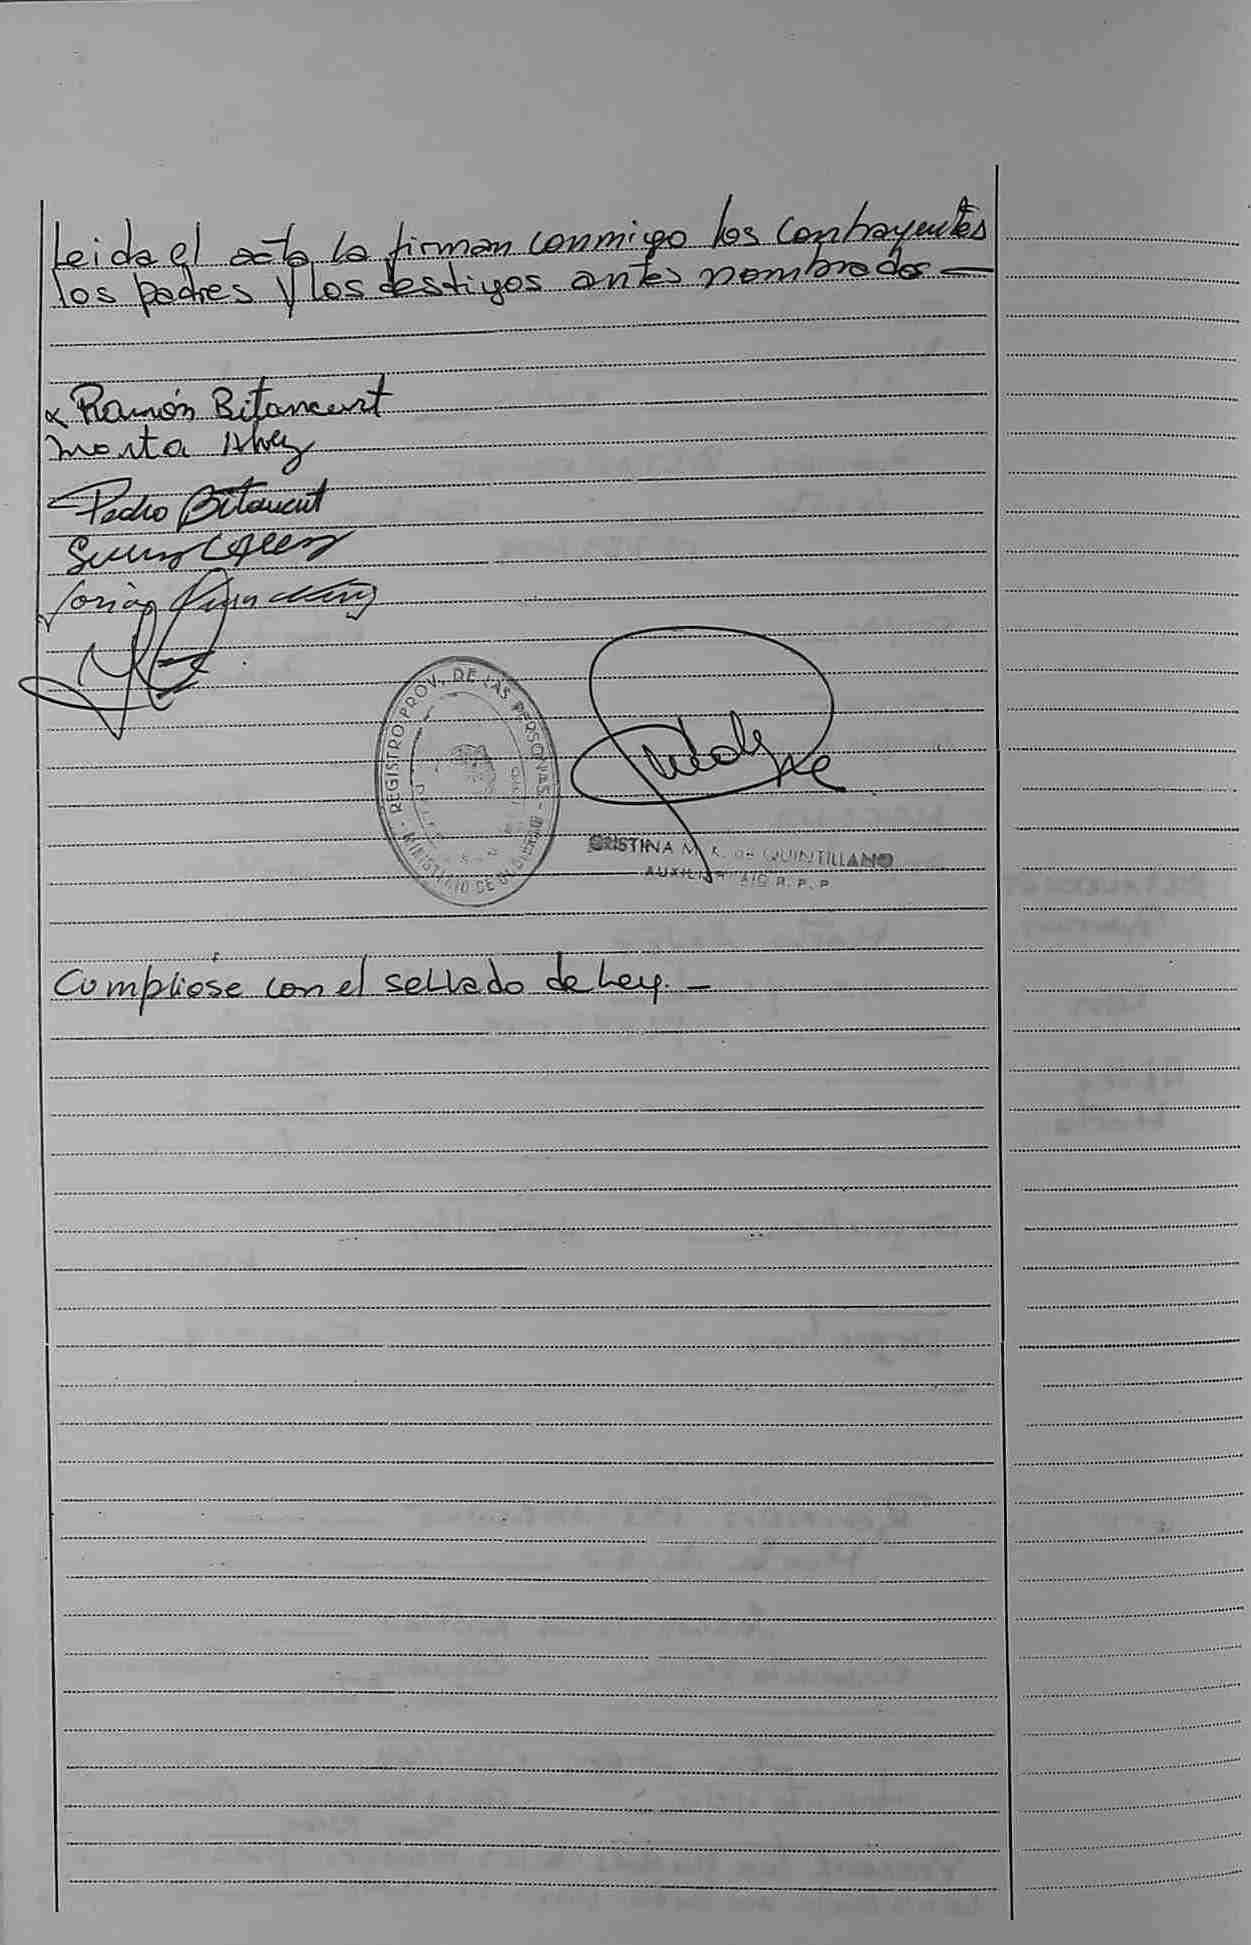 Leida el acta la firman conmigo los contrayentes
los padres y los destigos antes nombrados —
Ramón Bitancurt
Marta Alvez
Pedro Bitancurt
REGISTRO PROV. DE LAS PERSONAS - MINISTERIO DE
CRISTINA M. K. de QUINTILLANO
AUXILIAR R. P. P.
Cumpliose con el sellado de Ley. —